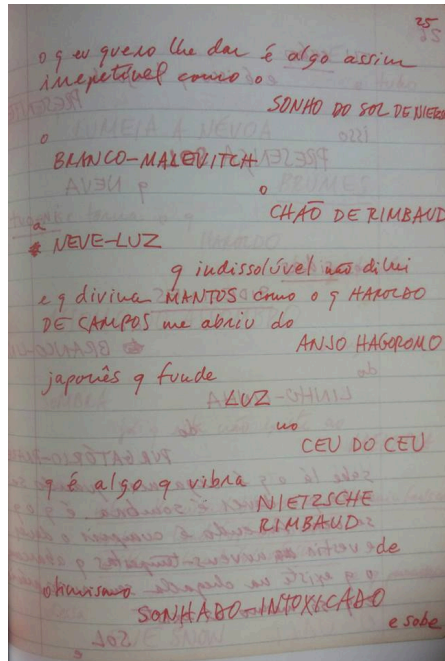 25
o q eu quero lhe dar é algo assim
irrepetível como o
SONHO DO SOL DE NIETZS
o
BRANCO-MALEVITCH
o
CHÃO DE RIMBAUD
a
NEVE-LUZ
q indissolúvel não dilui
e q divina MANTOS como o q HAROLDO
DE CAMPOS me abriu do
ANJO HAGOROMO
japonês q funde
LUZ
no
CEU DO CEU
q é algo q vibra
NIETZSCHE
RIMBAUD
de
SONHADO-INTOXICADO
e sobe